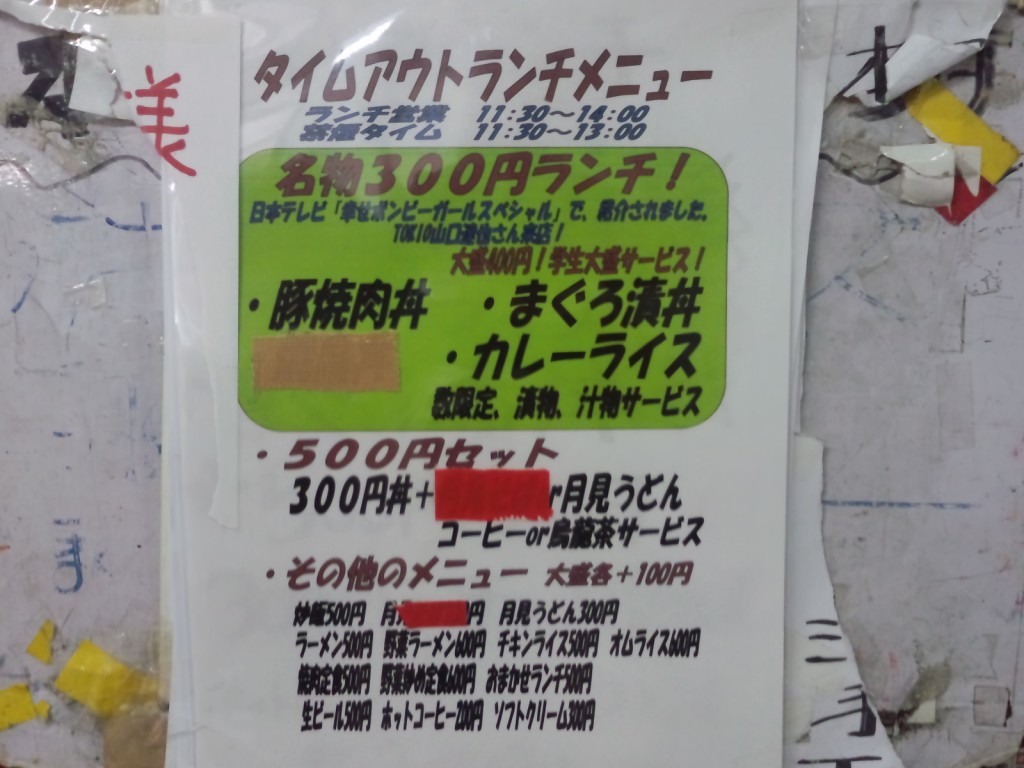 美
タイムアウトランチメニュー
ランチ営業 11:30～14:00
禁煙タイム 11:30～13:00
名物３００円ランチ！
日本テレビ「幸せボンビーガールスペシャル」で、紹介されました。
TOKIO山口達也さん来店！
大盛400円！学生大盛サービス！
・豚焼肉丼 ・まぐろ漬丼
・カレーライス
数限定、漬物、汁物サービス
・５００円セット
３００円丼＋ r月見うどん
コーヒーor烏龍茶サービス
・その他のメニュー 大盛各＋100円
炒飯500円 月 円 月見うどん300円
ラーメン500円 野菜ラーメン600円 チキンライス500円 オムライス600円
焼肉定食500円 野菜炒め定食600円 おまかせランチ500円
生ビール500円 ホットコーヒー200円 ソフトクリーム300円